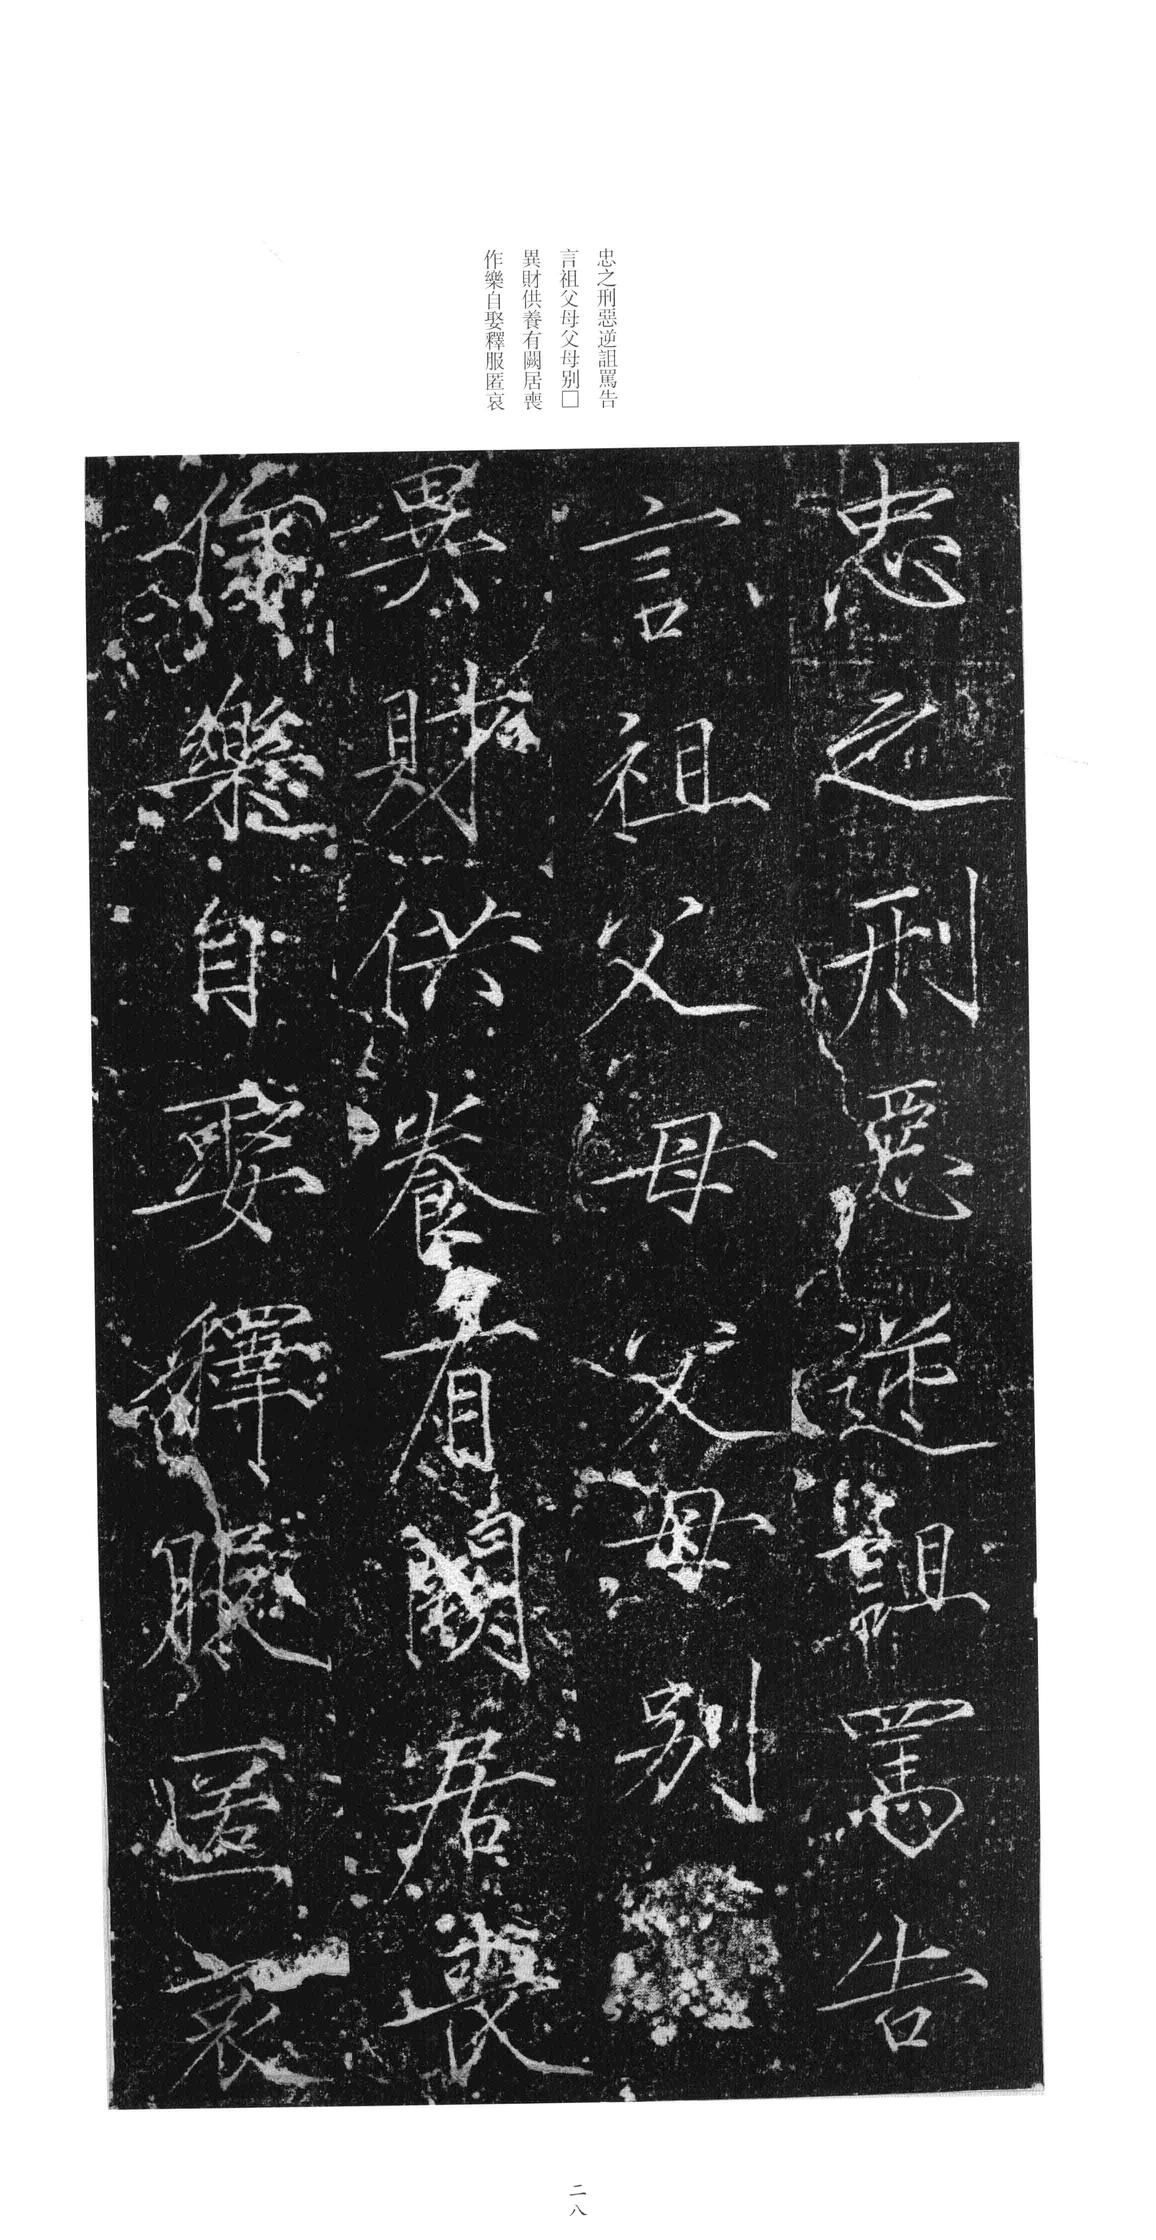 忠之刑惡逆詛罵告
言祖父母父母別□
異財供養有闕居喪
作樂自娶釋服匿哀
忠之刑惡逆詛罵告
言祖父母父母別
異財供養有闕居喪
作樂自娶釋服匿哀
二八